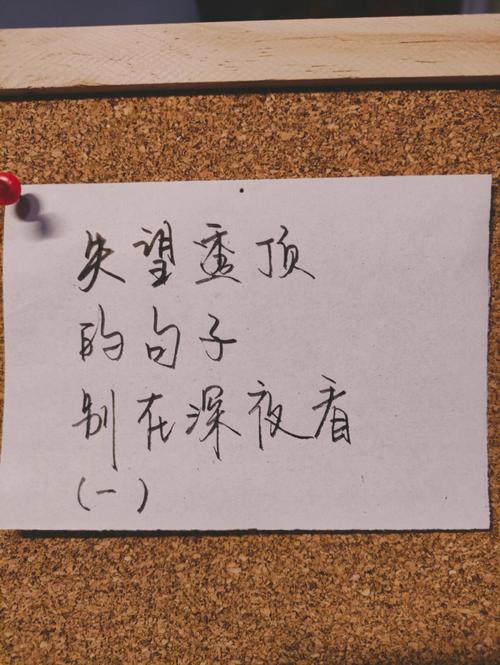 失望透顶
的句子
别在深夜看
(一)